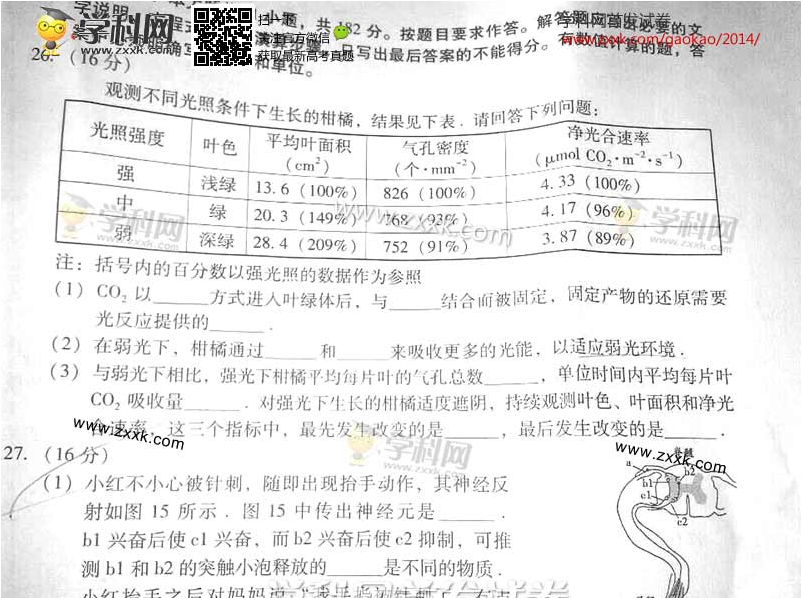 学说明
学科网
www.zxxk.com
扫一题
关注官方微信
获取最新高考真题
小题，共182分。按题目要求作答。解答题应写出必要的文
学科网首发试卷
www.zxxk.com/gaokao/2014/
演算步骤，只写出最后答案的不能得分。有数值计算的题，答
和单位。
26.（16分）
观测不同光照条件下生长的柑橘，结果见下表．请回答下列问题：
光照强度 叶色 平均叶面积（cm²） 气孔密度（个·mm⁻²） 净光合速率（μmol CO₂·m⁻²·s⁻¹）
强 浅绿 13.6（100%） 826（100%） 4.33（100%）
中 绿 20.3（149%） 768（93%） 4.17（96%）
弱 深绿 28.4（209%） 752（91%） 3.87（89%）
学科网
www.zxxk.com
www.zxxk.com
学科网
www.zxxk.com
注：括号内的百分数以强光照的数据作为参照
（1）CO₂ 以______方式进入叶绿体后，与______结合而被固定，固定产物的还原需要
光反应提供的______．
（2）在弱光下，柑橘通过______和______来吸收更多的光能，以适应弱光环境．
（3）与弱光下相比，强光下柑橘平均每片叶的气孔总数______，单位时间内平均每片叶
CO₂ 吸收量______．对强光下生长的柑橘适度遮阴，持续观测叶色、叶面积和净光
合速率，这三个指标中，最先发生改变的是______，最后发生改变的是______．
www.zxxk.com
学科网
www.zxxk.com
www.zxxk.com
27.（16分）
（1）小红不小心被针刺，随即出现抬手动作，其神经反
射如图 15 所示．图 15 中传出神经元是______．
b1 兴奋后使 c1 兴奋，而 b2 兴奋后使 c2 抑制，可推
测 b1 和 b2 的突触小泡释放的______是不同的物质．
a
b1
b2
c1
c2
学科网首发试卷
小红抬手之后对妈妈说